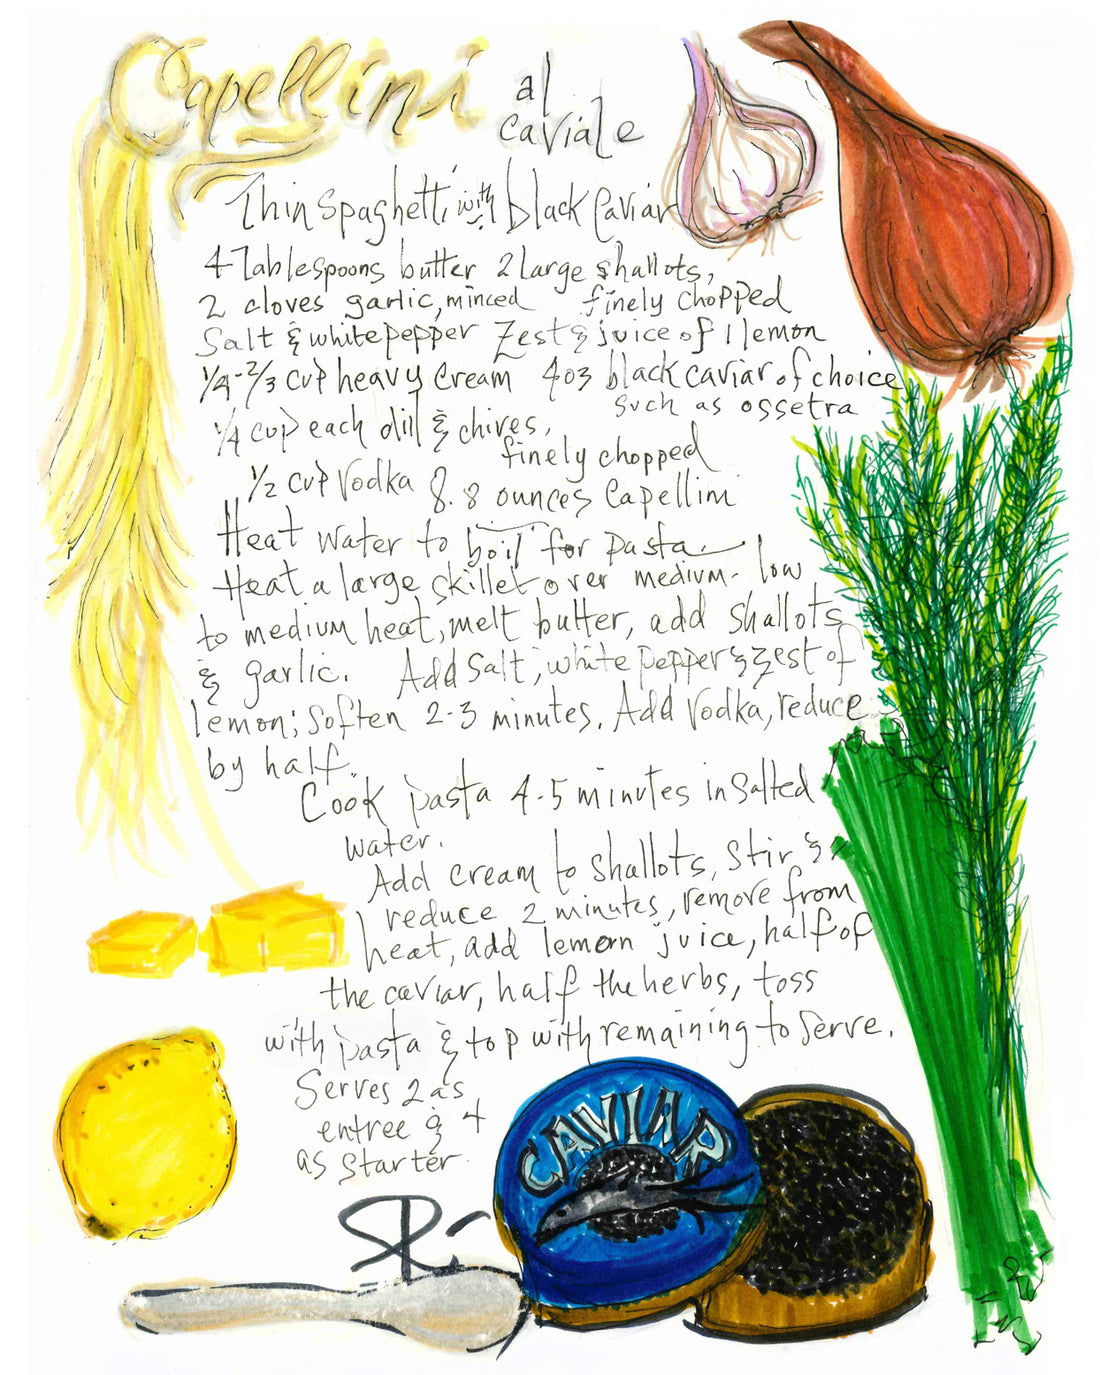 Capellini al
caviale
Thin Spaghetti with black Caviar
4 Tablespoons butter 2 Large shallots,
2 cloves garlic, minced finely chopped
Salt & white pepper Zest & juice of 1 lemon
1/4-2/3 cup heavy cream 4oz black caviar of choice
such as ossetra
1/4 cup each dill & chives,
finely chopped
1/2 cup Vodka 8.8 ounces Capellini
Heat water to boil for pasta.
Heat a large skillet over medium-low
to medium heat, melt butter, add shallots
& garlic. Add salt, white pepper & zest of
lemon; soften 2-3 minutes. Add Vodka, reduce
by half.
Cook pasta 4-5 minutes in salted
water.
Add cream to shallots, stir &
reduce 2 minutes, remove from
heat, add lemon juice, half of
the caviar, half the herbs, toss
with pasta & top with remaining to serve.
Serves 2 as
entree & 4
as starter
CAVIAR
SR